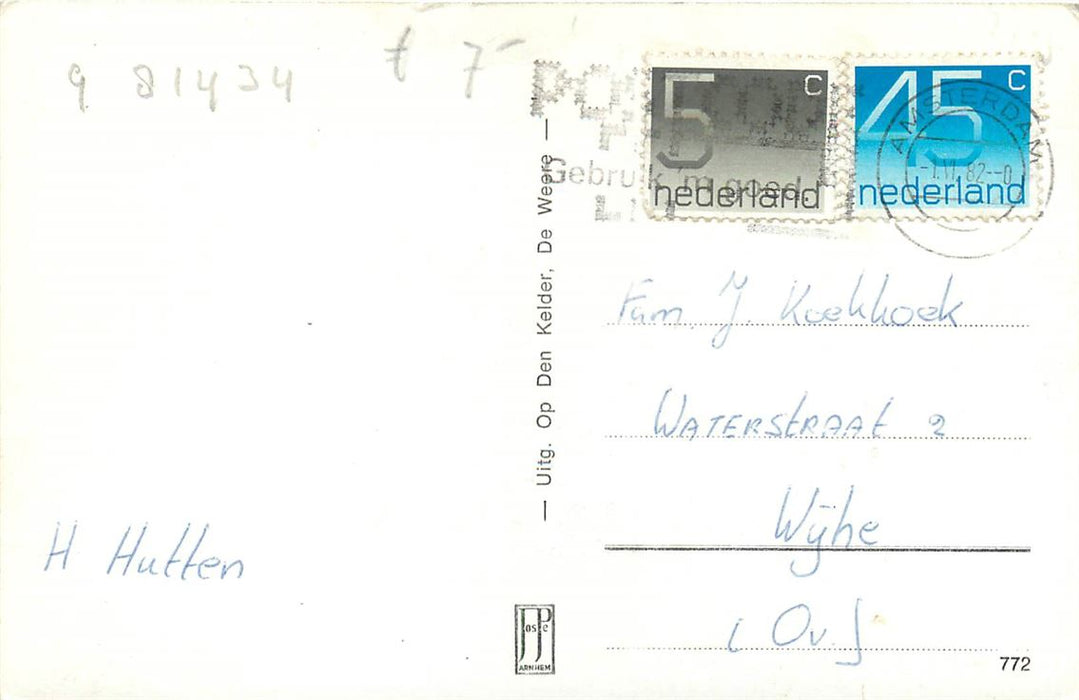 g 81434
f 7-
5 c
nederland
45 c
nederland
AMSTERDAM
Gebruik 'm goed.
— Uitg. Op Den Kelder, De Weere —
Fam. J. Koekkoek
WATERSTRAAT 2
Wijhe
(Ov.)
H Hutten
JosPe
ARNHEM
772